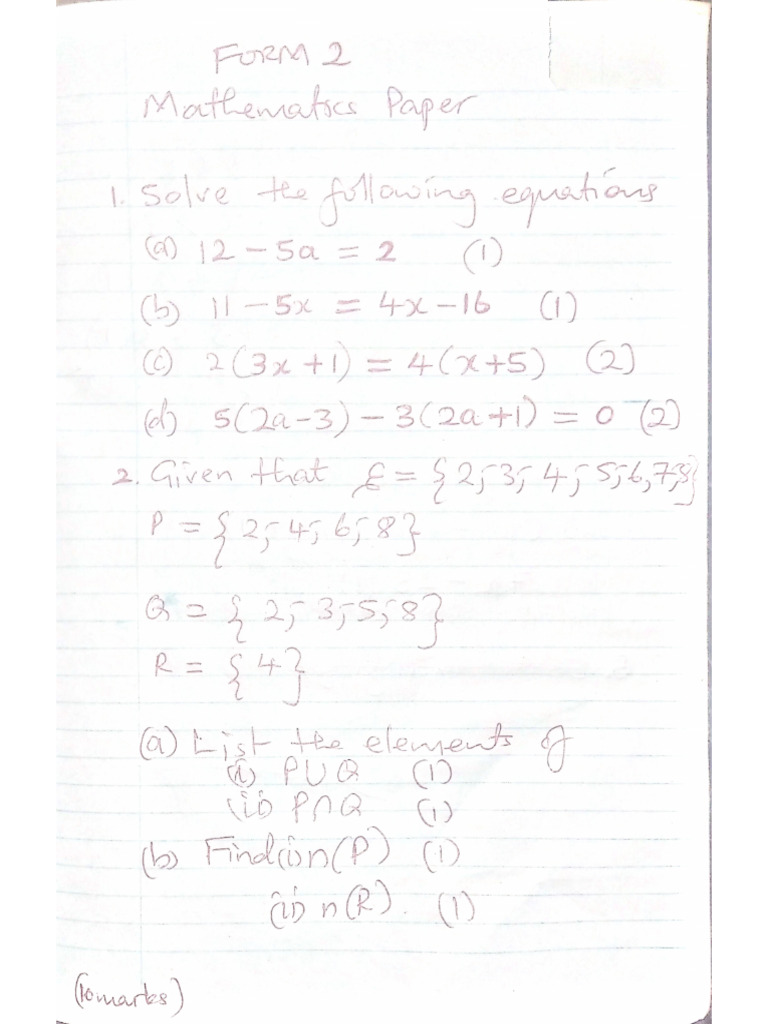 FORM 2
Mathematics Paper
1. Solve the following equations
(a) 12 - 5a = 2 (1)
(b) 11 - 5x = 4x - 16 (1)
(c) 2(3x + 1) = 4(x + 5) (2)
(d) 5(2a - 3) - 3(2a + 1) = 0 (2)
2. Given that ℰ = {2; 3; 4; 5; 6, 7, 8}
P = {2; 4; 6; 8}
Q = {2; 3; 5; 8}
R = {4}
(a) List the elements of
(i) P∪Q (1)
(ii) P∩Q (1)
(b) Find (i) n(P) (1)
(ii) n(R). (1)
(10 marks)